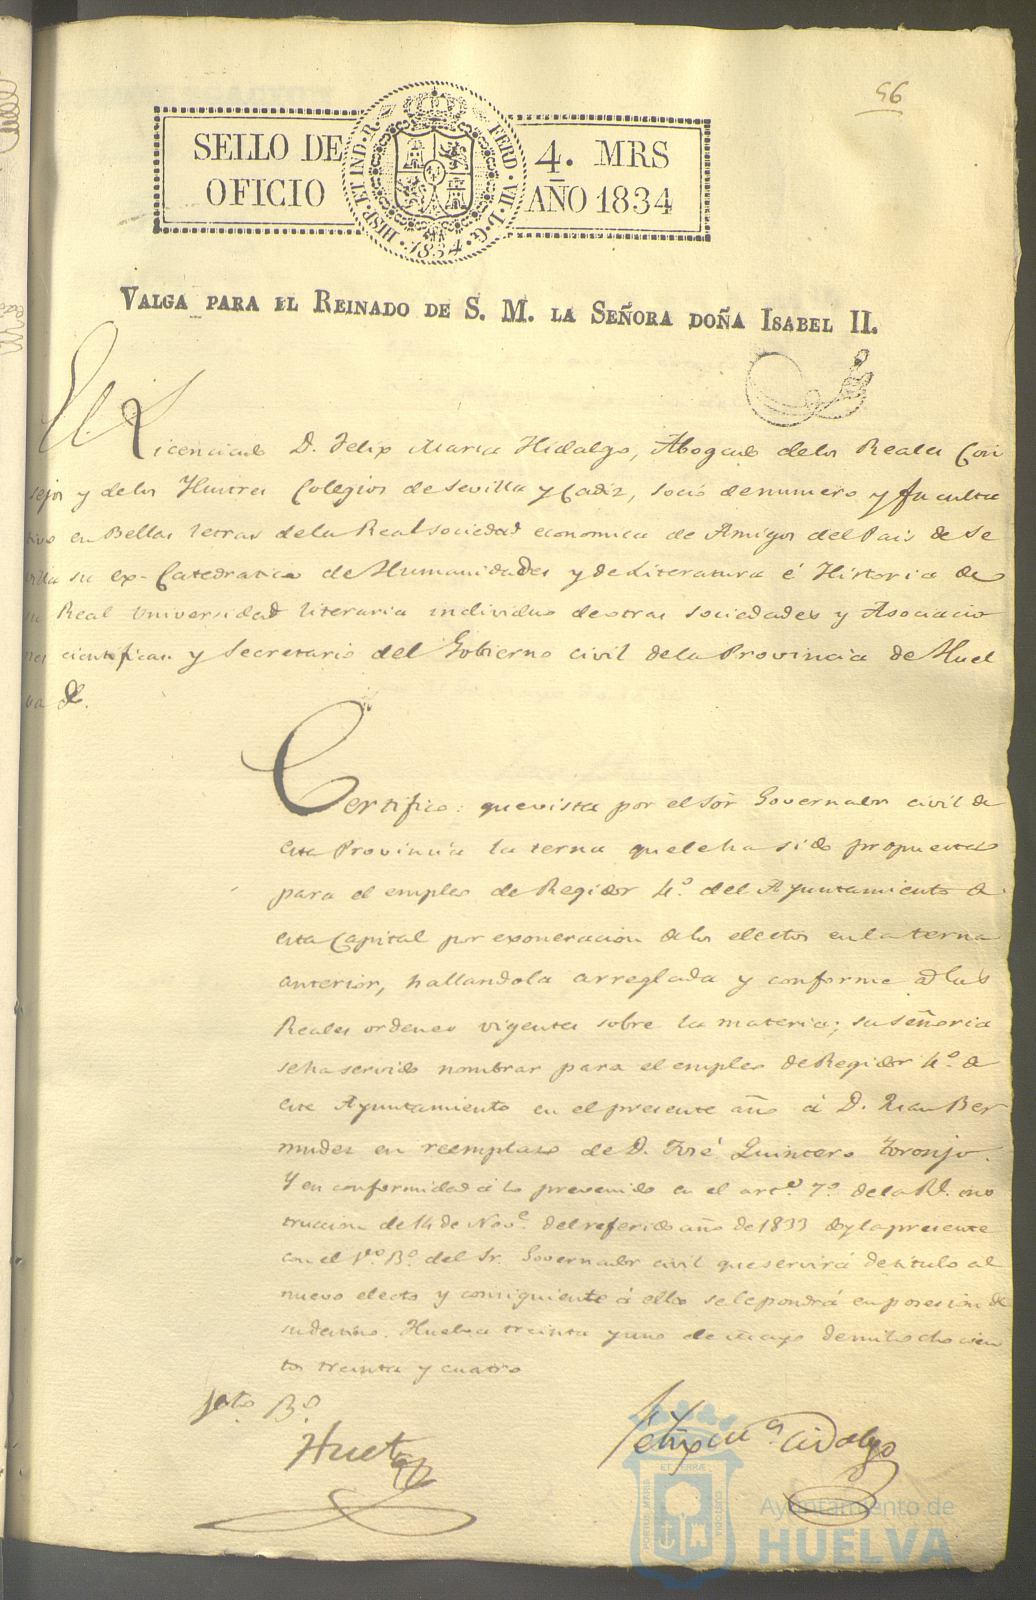 56
SELLO DE
OFICIO
HISP. ET IND. R. FERD. VII. D. G. 1834.
4. MRS
AÑO 1834
VALGA PARA EL REINADO DE S. M. LA SEÑORA DOÑA ISABEL II.
El Licenciado D. Felix Maria Hidalgo, Abogado delos Reales Con
sejos y delos Ilustres Colegios de Sevilla y Cadiz, socio denumero y faculta
tivo en Bellas letras dela Real sociedad economica de Amigos del Pais de Se
villa su ex-Catedratico de Humanidades y de Literatura é Historia de
su Real Universidad literaria individuo deotras sociedades y Asociacio
nes cientificas y Secretario del Gobierno civil dela Provincia de Huel
va &.
Certifico: quevista por el Sor Governador civil de
esta Provincia la terna queleha sido propuesta
para el empleo de Regidor 4.º del Ayuntamiento de
esta Capital por exoneracion delos electos enla terna
anterior, hallandola arreglada y conforme a las
Reales ordenes vigentes sobre la materia; su señoria
seha servido nombrar para el empleo de Regidor 4.º de
este Ayuntamiento en el presente año á D. Juan Ber
mudez en reemplazo de D. José Quintero Toronjo.
Y en conformidad á lo prevenido en el art.º 7.º dela Rl. ins
truccion de 14 de Nov.e del referido año de 1833 doy la presente
con el V.º B.º del Sr. Governador civil queservirá detitulo al
nuevo electo y consiguiente á ello sele pondrá en posesion de
sudestino. Huelva treinta y uno de Mayo demil ocho cien
tos treinta y cuatro
V.to B.º
Huet
Felix M.a Hidalgo
Ayuntamiento de
HUELVA